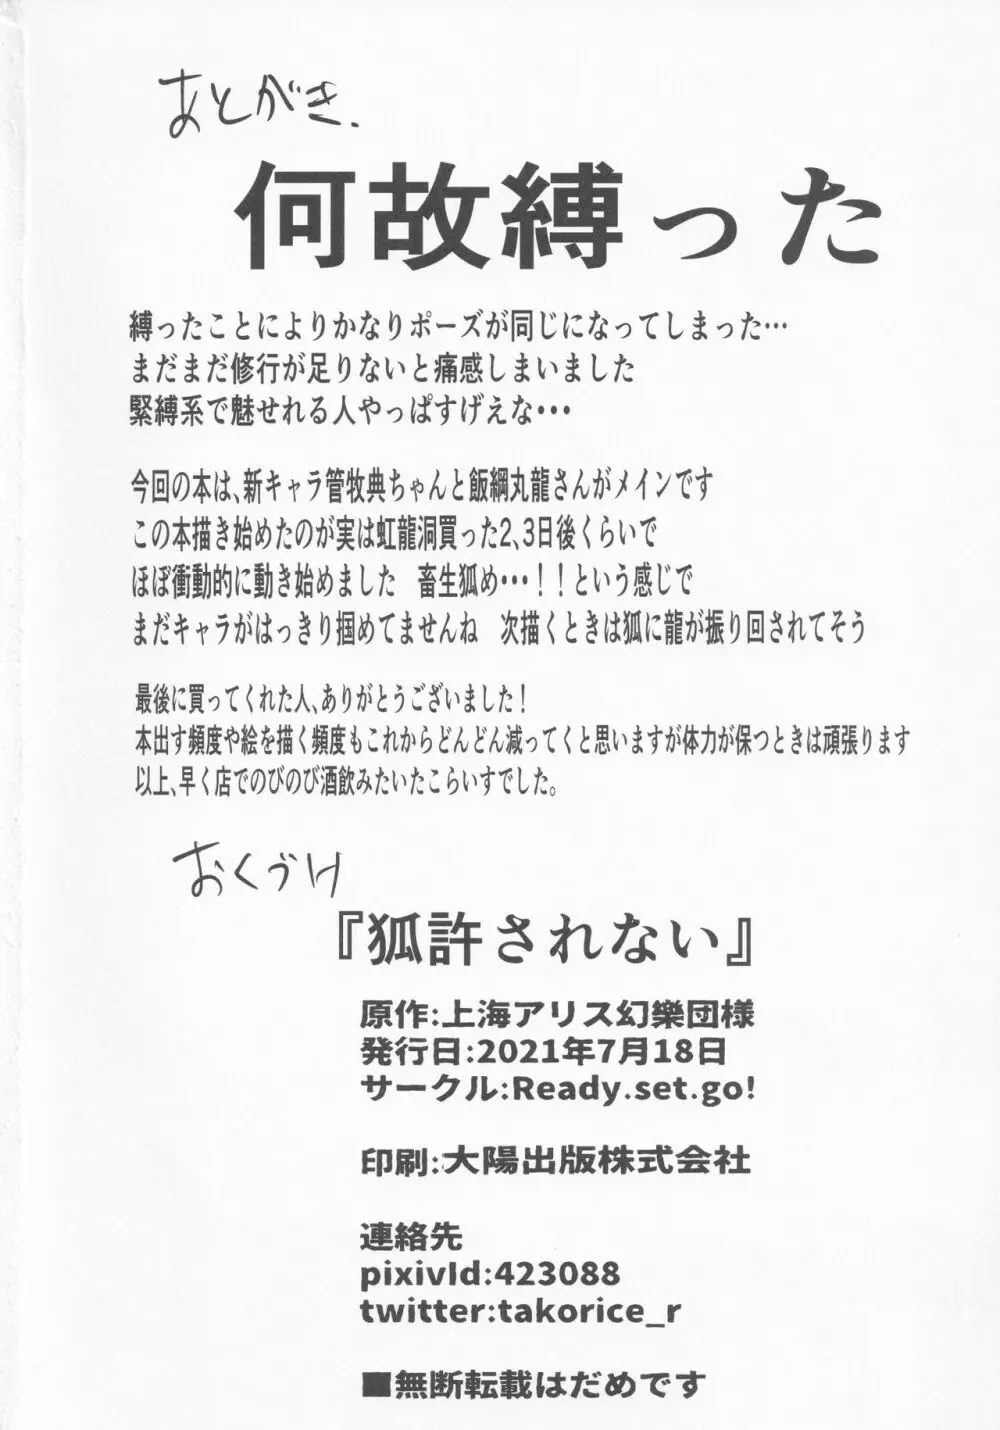 あとがき.
何故縛った
縛ったことによりかなりポーズが同じになってしまった…
まだまだ修行が足りないと痛感しまいました
緊縛系で魅せれる人やっぱすげえな・・・
今回の本は、新キャラ管牧典ちゃんと飯綱丸龍さんがメインです
この本描き始めたのが実は虹龍洞買った2、3日後くらいで
ほぼ衝動的に動き始めました　畜生狐め・・・！！という感じで
まだキャラがはっきり掴めてませんね　次描くときは狐に龍が振り回されてそう
最後に買ってくれた人、ありがとうございました！
本出す頻度や絵を描く頻度もこれからどんどん減ってくと思いますが体力が保つときは頑張ります
以上、早く店でのびのび酒飲みたいたこらいすでした。
おくづけ
『狐許されない』
原作:上海アリス幻樂団様
発行日:2021年7月18日
サークル:Ready.set.go!
印刷:大陽出版株式会社
連絡先
pixivId:423088
twitter:takorice_r
■無断転載はだめです